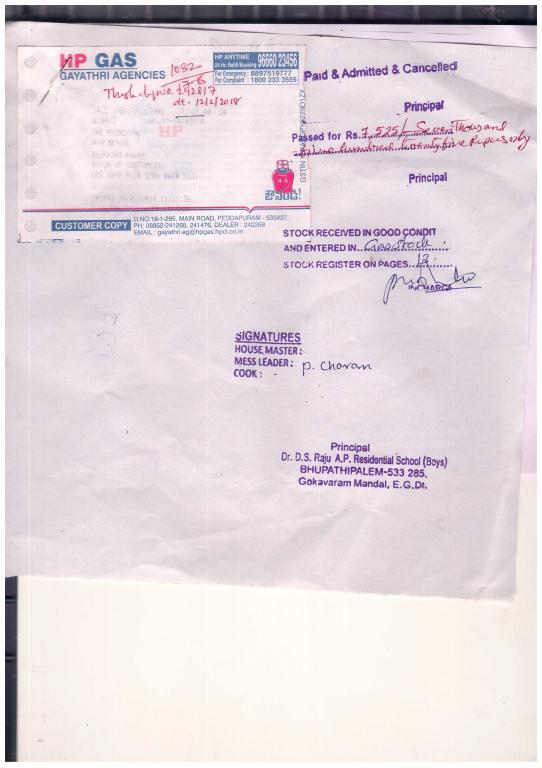 HP GAS
GAYATHRI AGENCIES
1082
HP ANYTIME
24 Hr. Refill Booking 96660 23456
For Emergency : 8897519777
For Complaint : 1800 233 3555
dt. 12/2/2018
THE PRINCIPAL
HP
CUSTOMER COPY
D.NO.19-1-295, MAIN ROAD, PEDDAPURAM - 533437.
PH: 08852-241268, 241476, DEALER : 242268
EMAIL : gayathri.eg@hpgas.hpcl.co.in
Paid & Admitted & Cancelled
Principal
Passed for Rs. 7,525/- Seven Thousand
five hundred twenty five Rupees only
Principal
STOCK RECEIVED IN GOOD CONDIT
AND ENTERED IN Gas stock
STOCK REGISTER ON PAGES 12
SIGNATURES
HOUSE MASTER :
MESS LEADER : P. Charan
COOK : -
Principal
Dr. D.S. Raju A.P. Residential School (Boys)
BHUPATHIPALEM-533 285,
Gokavaram Mandal, E.G.Dt.